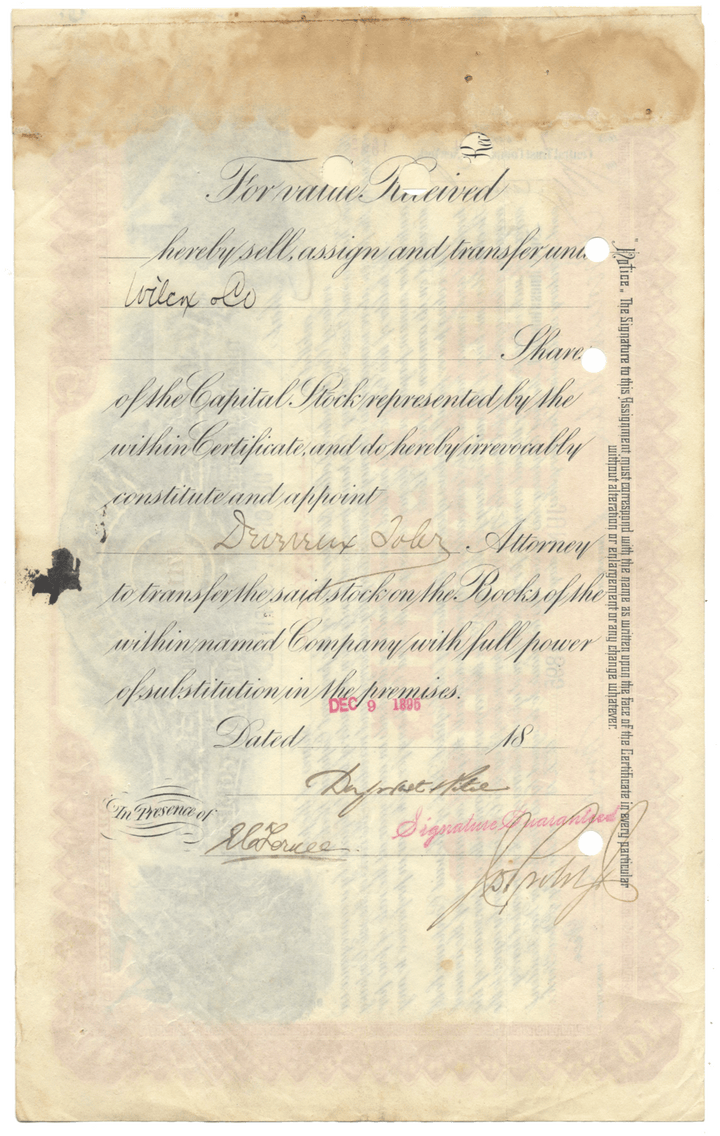 For value Received
hereby sell, assign and transfer unto
Wilcox & Co
Shares
of the Capital Stock represented by the
within Certificate, and do hereby irrevocably
constitute and appoint
Attorney
to transfer the said stock on the Books of the
within named Company with full power
of substitution in the premises.
DEC 9 1895
Dated 18
In Presence of
Signature Guaranteed
"Notice. The Signature to this Assignment must correspond with the name as written upon the face of the Certificate in every particular
without alteration or enlargement or any change whatever.